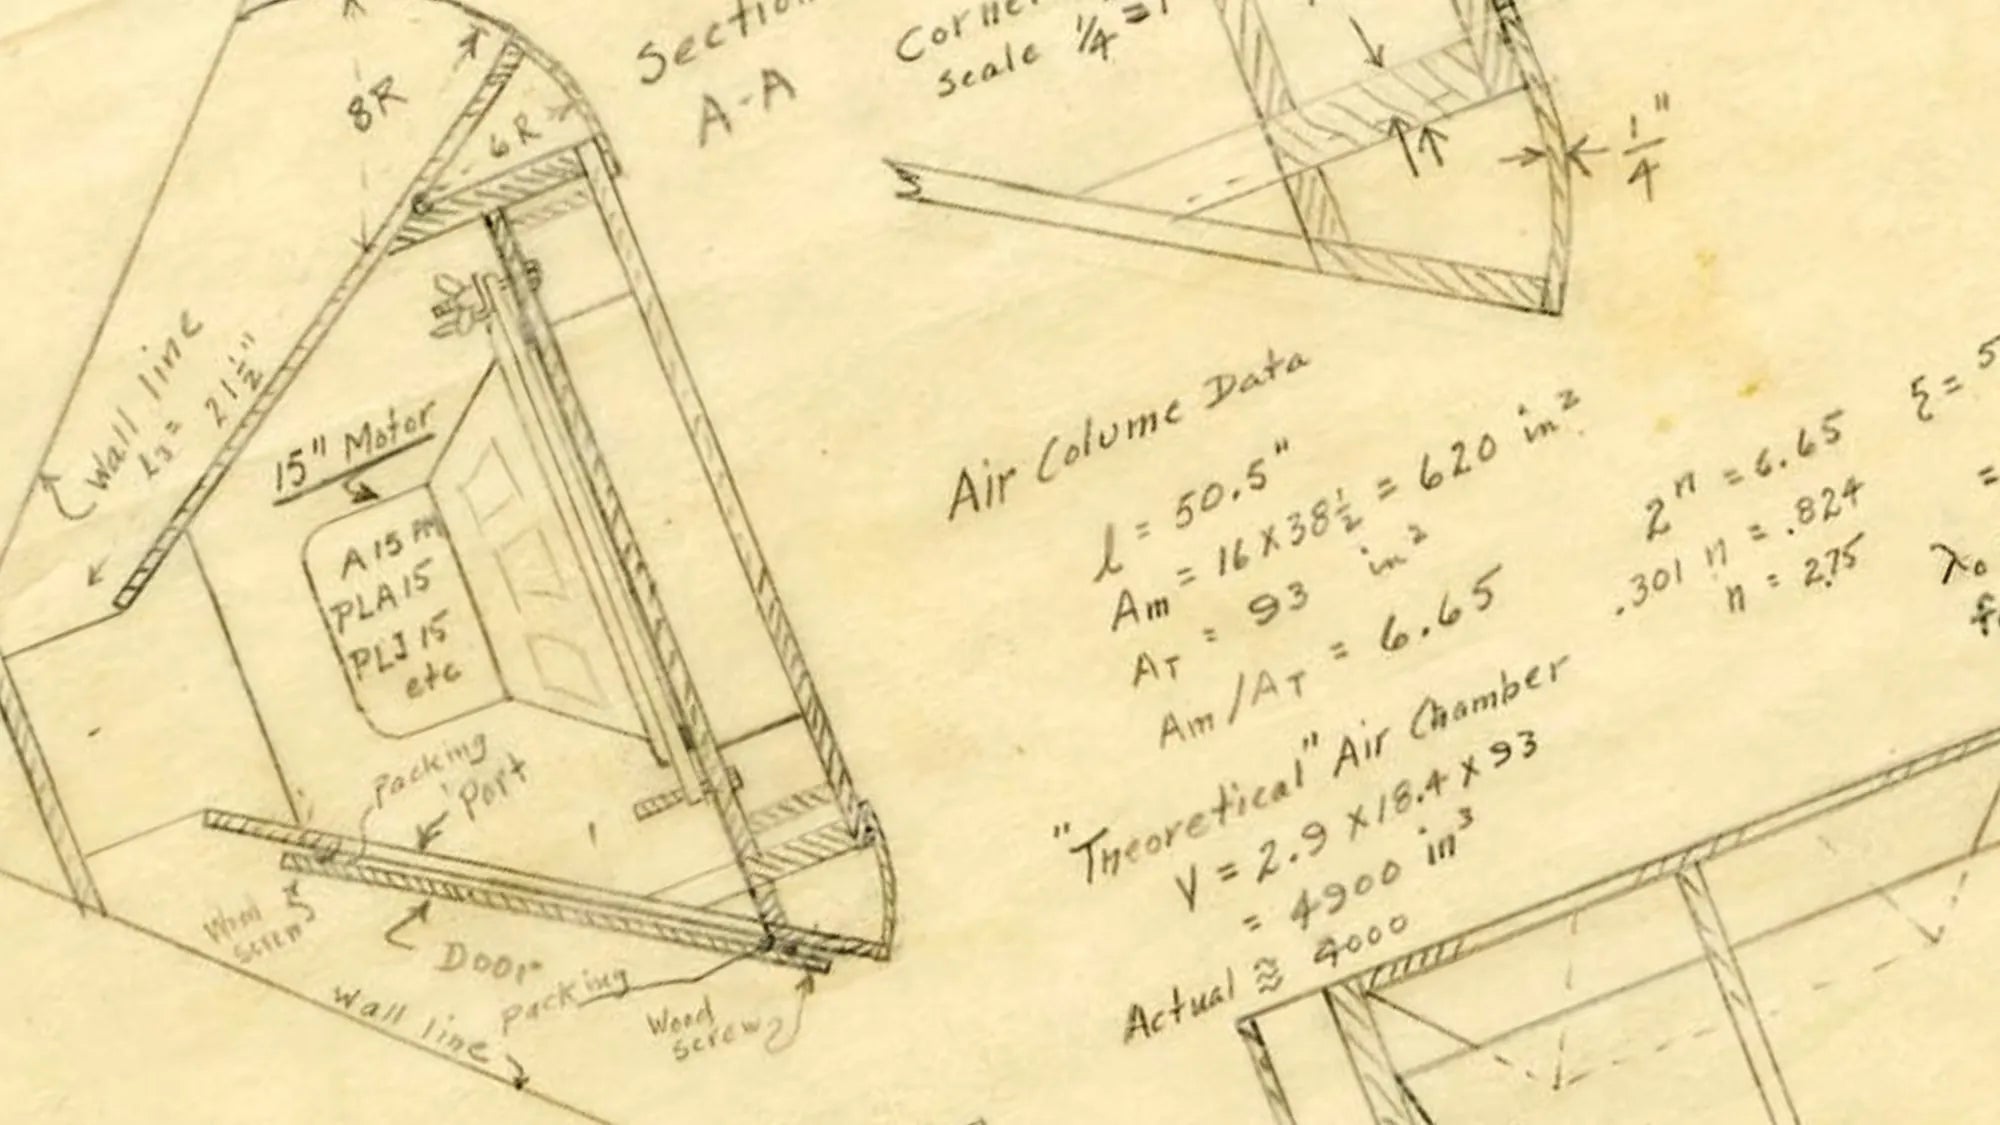 8R
6R
Section
A-A
Corne
scale 1/4 = 1
1/4"
Wall line
L3 = 21 1/2"
15" Motor
A 15 AM
PLA 15
PLJ 15
etc
Packing
Port
Wood
screw
Door
packing
Wood
screw
Wall line
Air Column Data
l = 50.5"
Am = 16 X 38 1/2 = 620 in²
AT = 93 in²
Am/AT = 6.65
2ⁿ = 6.65
.301 n = .824
n = 2.75
ξ = 5
=
λ₀
f₀
"Theoretical" Air Chamber
V = 2.9 X 18.4 X 93
= 4900 in³
Actual ≅ 4000